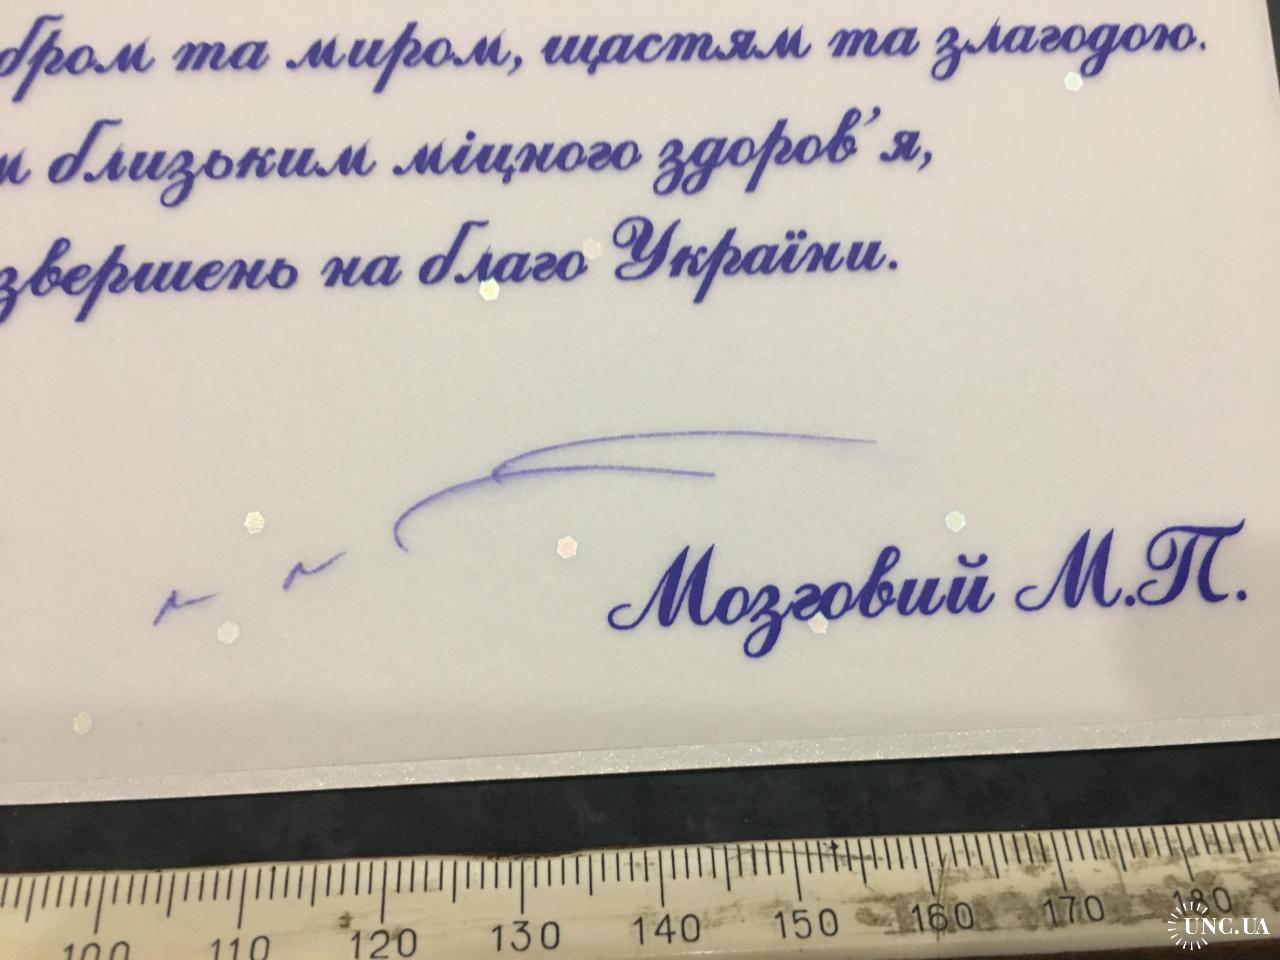 бром та миром, щастям та злагодою.
и близьким міцного здоров'я,
звершень на благо України.
Мозговий М.П.
100 110 120 130 140 150 160 170 180
UNC.UA